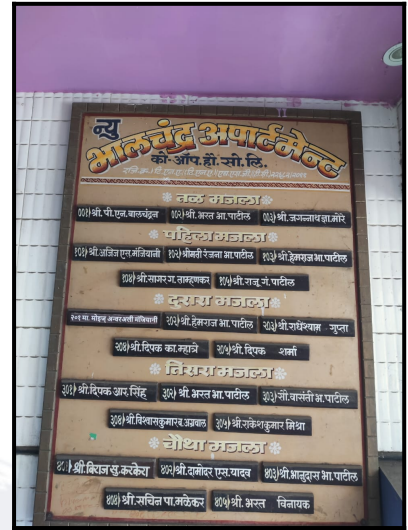 न्यु
भालचंद्र अपार्टमेन्ट
को-ऑप.हौ.सो.लि.
तळ मजला
००१) श्री.पी.एन.बालचंद्रन ००२) श्री.भरत भा.पाटील ००३) श्री.जगन्नाथ ज्ञा.मोरे
पहिला मजला
१०१) श्री.अजिज एस.मंजियानी १०२) श्रीमती रंजना भा.पाटील १०३) श्री.हेमराज भा.पाटील
१०४) श्री.सागर ग.ताम्हणकर १०५) श्री.राजू गं.पाटील
दुसरा मजला
२०१ मा. मोहज् अन्वरअली मंजियानी २०२) श्री.हेमराज भा.पाटील २०३) श्री.राधेश्याम गुप्ता
२०४) श्री.दिपक का.म्हात्रे २०५) श्री.दिपक शर्मा
तिसरा मजला
३०१) श्री.दिपक आर.सिंह ३०२) श्री.भरत भा.पाटील ३०३) सौ.वासंती भ.पाटील
३०४) श्री.विश्वासकुमार ब.अग्रवाल ३०५) श्री.राकेशकुमार मिश्रा
चौथा मजला
४०१) श्री.बिराज खु.करकेरा ४०२) श्री.दामोदर एस.यादव ४०३) श्री.भानुदास भा.पाटील
४०४) श्री.सचिन पा.मळेकर ४०५) श्री.भरत विनायक